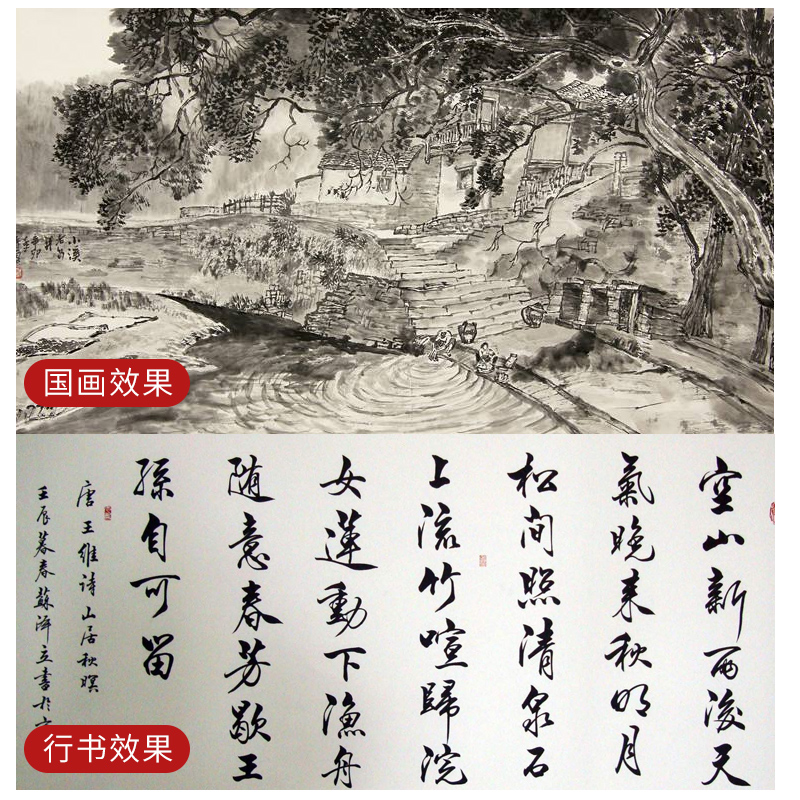 小溪
辛卯
国画效果
空山新雨後天
氣晚来秋明月
松间照清泉石
上流竹喧歸浣
女蓮動下漁舟
随意春芳歇王
孫自可留
唐王维诗山居秋暝
壬辰暮春蘇泽立書於
行书效果